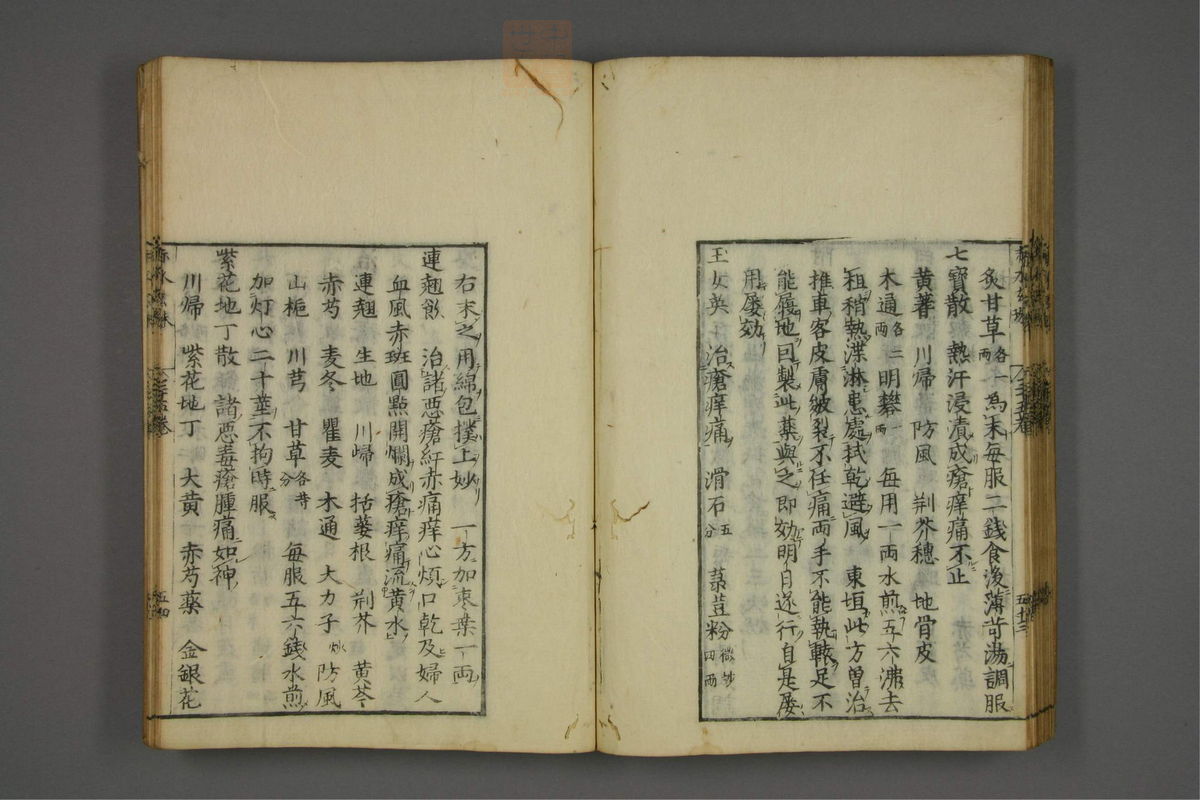 炙甘草各一両為末毎服二銭食後薄苛湯調服
七寶散 熱汗浸漬成瘡痒痛不止
黄蓍 川帰 防風 荆芥穗 地骨皮
木通各二両明礬一両 毎用一両水煎五六沸去
柤稍熱渫淋患處拭乾避風 東垣此方曽治
推車客皮膚皴裂不任痛両手不能執轅足不
能履地回製此薬與之即効明日遂行自是屡
用屡効
玉女英 治瘡痒痛 滑石五分 菉豆粉微炒四両
右末之用綿包撲上妙 一方加棗葉一両
連翹飲 治諸悪瘡紅赤痛痒心煩口乾及婦人
血風赤班圓點開爛成瘡痒痛流黄水
連翹 生地 川帰 括蒌根 荆芥 黄芩
赤芍 麦冬 瞿麦 木通 大力子炒 防風
山栀 川芎 甘草各等分 毎服五六銭水煎
加灯心二十莖不拘時服
紫花地丁散 諸悪毒瘡腫痛如神
川帰 紫花地丁 大黄 赤芍薬 金銀花